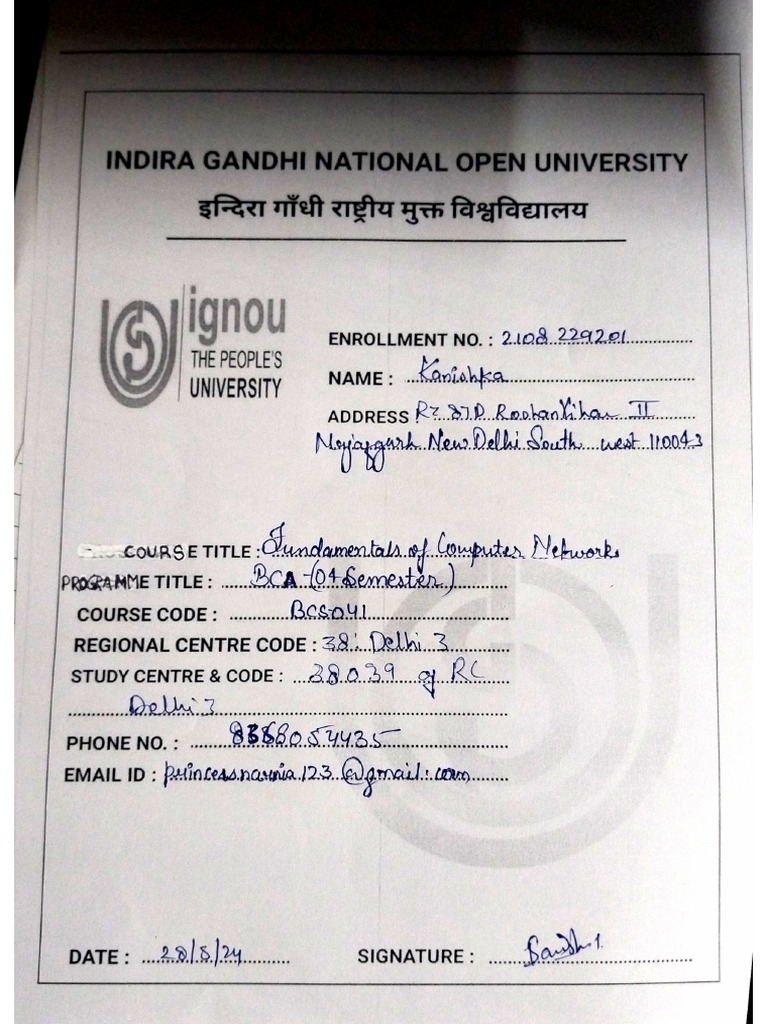 INDIRA GANDHI NATIONAL OPEN UNIVERSITY
इन्दिरा गाँधी राष्ट्रीय मुक्त विश्वविद्यालय
ignou
THE PEOPLE'S
UNIVERSITY
ENROLLMENT NO. : 2108229201
NAME : Kanishka
ADDRESS : RZ 87D Roshan Vihar II
Najafgarh New Delhi South west 110043
COURSE TITLE : Fundamentals of Computer Networks
PROGRAMME TITLE : BCA - (04 Semester)
COURSE CODE : BCS041
REGIONAL CENTRE CODE : 38: Delhi 3
STUDY CENTRE & CODE : 38039 of RC
Delhi 3
PHONE NO. : 8368054435
EMAIL ID : princessnarnia123@gmail.com
DATE : 28/8/24
SIGNATURE :